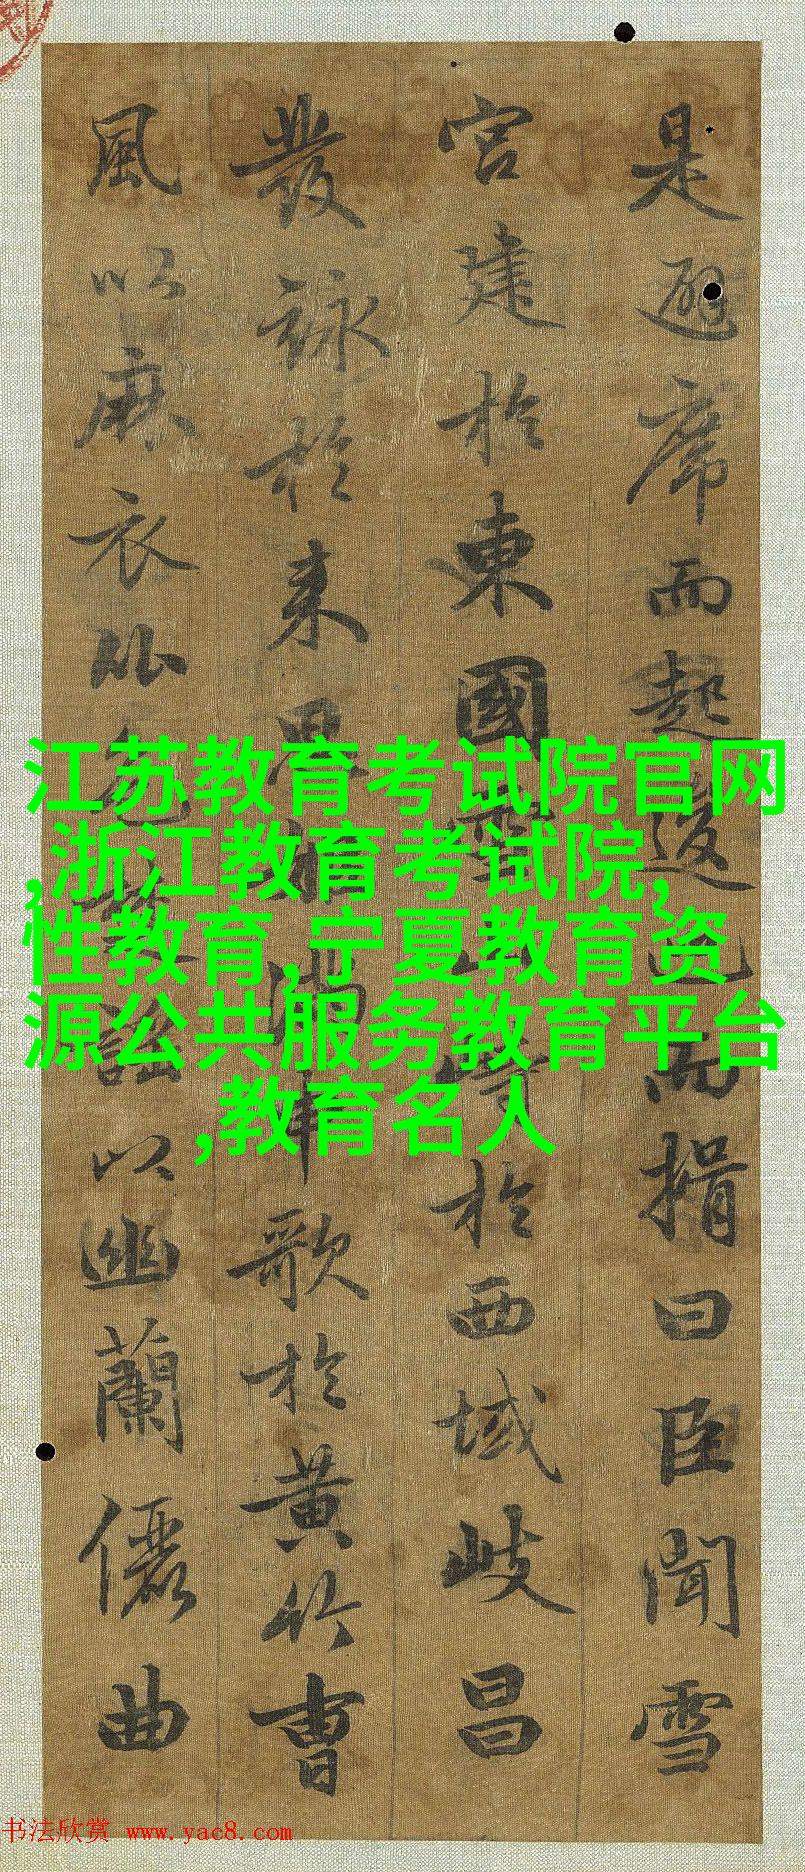 是避席而起逡而揖曰臣聞雪
宮建於東國於西域歧昌
發詠於來思滿歌於黃竹曹
風以麻衣比色謠以幽蘭儷曲
江苏教育考试院官网
,浙江教育考试院,
性教育,宁夏教育资
源公共服务教育平台
,教育名人
书法欣赏 www.yac8.com